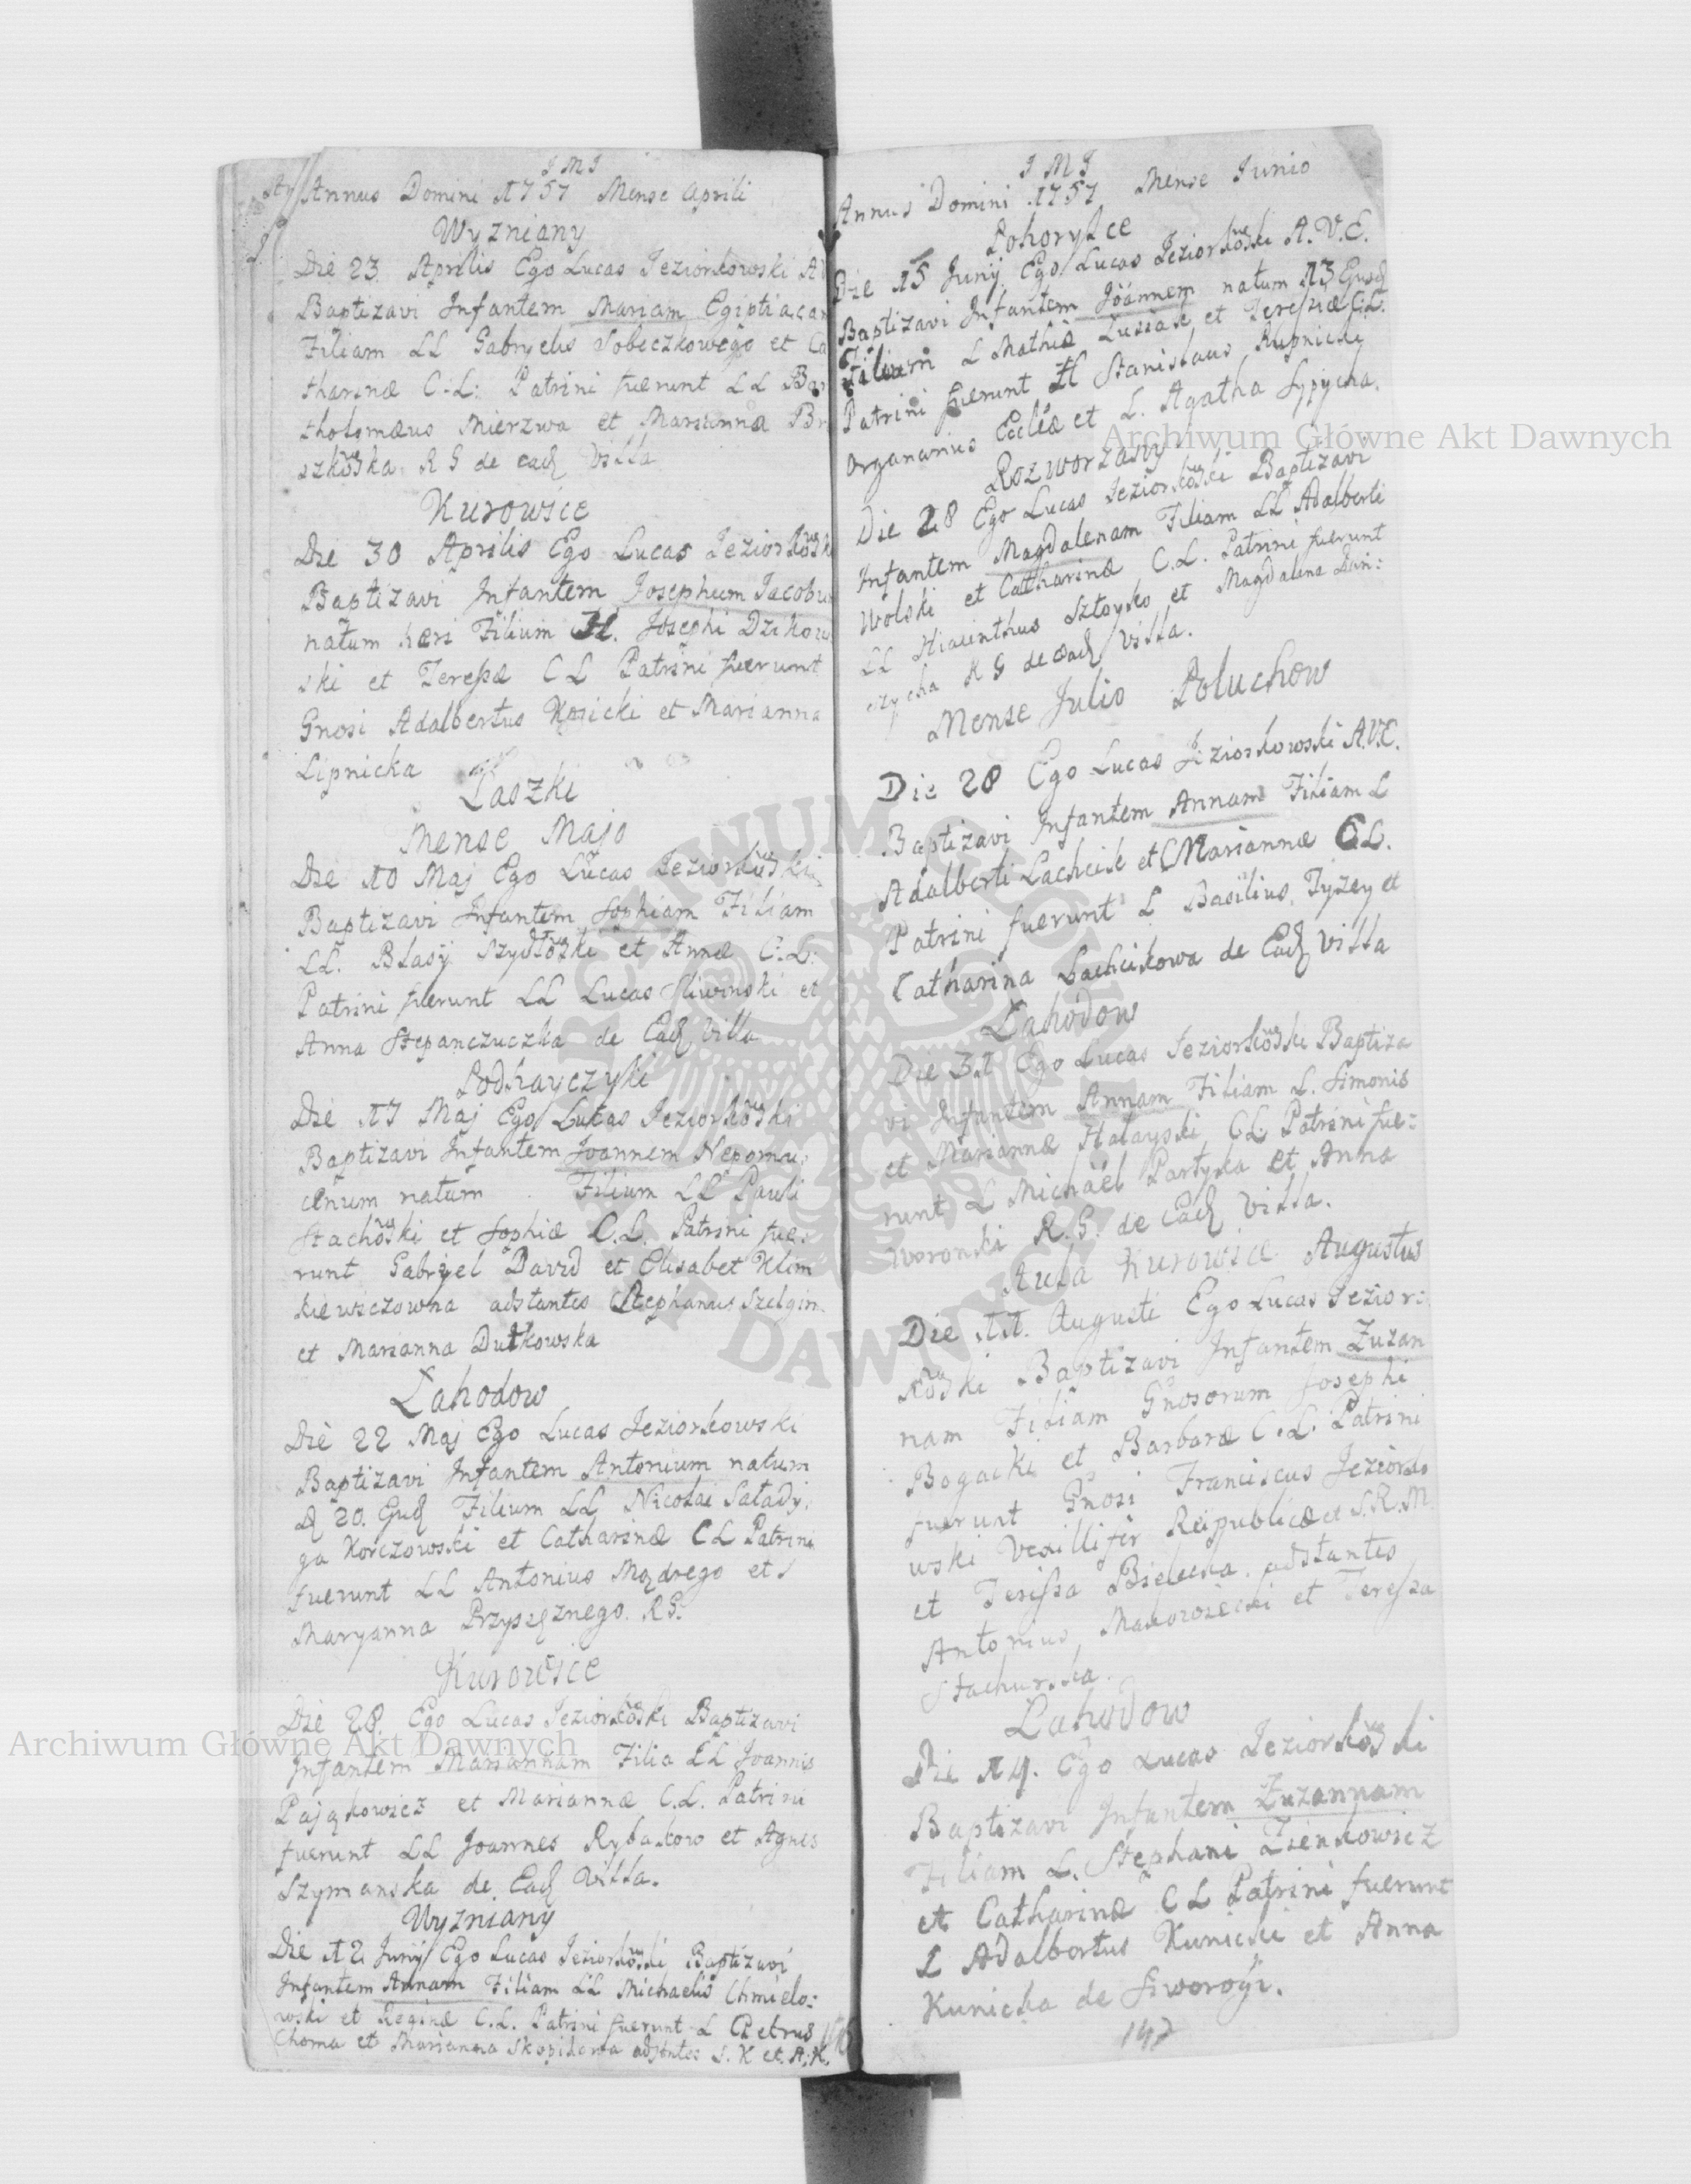 I M I
Annus Domini 1757 Mense Aprili
Wyzniany
Die 23 Aprilis Ego Lucas Jeziorkowski AV
Baptizavi Infantem Mariam Egiptiacam
Filiam LL Gabryelis Sobeczkowego et Ca
tharinæ C:L: Patrini fuerunt LL Bar
tholomæus Mierzwa et Marianna
szkowska R G de ead Villa
Kurowice
Die 30 Aprilis Ego Lucas Jeziorkowski
Baptizavi Infantem Josephum Jacobum
natum hæri Filium Josephi Dzikow
ski et Teressæ C L Patrini fuerunt
Gnosi Adalbertus Kosicki et Marianna
Lipnicka
Laszki
Mense Majo
Die 10 Maj Ego Lucas Jeziorkowski
Baptizavi Infantem Sophiam Filiam
LL. Blasÿ Szydłowski et Annæ C:L:
Patrini fuerunt LL Lucas Sliwinski et
Anna Stepanczuczka de Ead Villa
Podhayczyki
Die 17 Maj Ego Lukas Jeziorkowski
Baptizavi Infantem Joannem Nepomu:
cenum natum Filium LL Pauli
Stachowski et Sophiæ C.L. Patrini fue:
runt Gabryel David et Elisabet Klim
kiewiczowna adstantes Stephanus Szelgin
et Marianna Dutkowska
Lahodow
Die 22 Maj Ego Lucas Jeziorkowski
Baptizavi Infantem Antonium natum
D 20. Ejusd Filium LL Nicolai Saładÿ
ga Korczowski et Catharinæ C L Patrini
fuerunt LL Antonius Mądrego et
Maryanna Przysężnego. R G.
Kurowice
Die 28. Ego Lucas Jeziorkowski Baptizavi
Infantem Mariannam Filia LL Joannis
Pająkowicz et Mariannæ C.L. Patrini
fuerunt LL Joannes Rybakow et Agnes
Szymanska de Ead Villa.
Wyzniany
Die 12 Junÿ Ego Lucas Jeziorkowski Baptizavi
Infantem Annam Filiam LL Michaelis Chmielo:
wski et Reginæ C.L. Patrini fuerunt L Petrus
Choma et Marianna Skopikowa adstntes S. K et. A. K.
I M I
Annus Domini 1757 Mense Junio
Pohorylce
Die 15 Junÿ Ego Lucas Jeziorkowski A.V.E.
Baptizavi Infantem Joannem natum 13 Ejusd
Filium L Mathiæ Lusiak et Teressiæ C:L.
Patrini fuerunt Stanislaus Rupnicki
Organarius Eccliæ et L. Agatha Spycha.
Rozworzany
Die 28 Ego Lucas Jeziorkowski Baptizavi
Infantem Magdalenam Filiam LL Adalberti
Wolski et Catharinæ C.L. Patrini fuerunt
LL Hiacinthus Sztoyko et Magdalena Dani:
szycha R G de ead Villa.
Mense Julio Poluchow
Die 28 Ego Lucas Jeziorkowski A.V.E.
Baptizavi Infantem Annam Filiam L
Adalberti Lachcik et Mariannæ C.L.
Patrini fuerunt L Basilius Tyzey et
Catharina Lachcikowa de Ead Villa
Lahodow
Die 31 Ego Lucas Jeziorkowski Baptiza
vi Infantem Annam Filiam L. Simonis
et Mariannæ Hałayski C:L: Patrini fue:
runt L Michael Partyka et Anna
Woronski R. G. de Ead Villa.
Aula Kurowice Augustus
Die 11. Augusti Ego Lucas Jezior:
kowski Baptizavi Infantem Zuzan
nam Filiam Gnosorum Josephi
Bogacki et Barbaræ C.L. Patrini
fuerunt Gnosi Franciscus Jeziorko
wski Vexillifer Reipublicæ et S.R.M.
et Teressa Bielecka. adstantes
Antonius Makowiecki et Teressa
Stachurska.
Lahodow
Die 14. Ego Lucas Jeziorkowski
Baptizavi Infantem Zuzannam
Filiam L. Stephani Zienkowicz
et Catharinæ C L Patrini fuerunt
L Adalbertus Kunicki et Anna
Kunicka de Siworogi.
147
Archiwum Główne Akt Dawnych
Archiwum Główne Akt Dawnych
ARCHIWUM GŁÓWNE AKT DAWNYCH